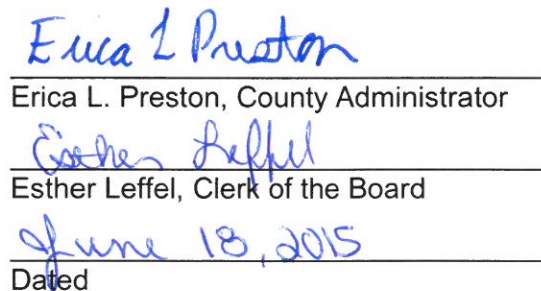 Erica L Preston
Erica L. Preston, County Administrator
Esther Leffel
Esther Leffel, Clerk of the Board
June 18, 2015
Dated